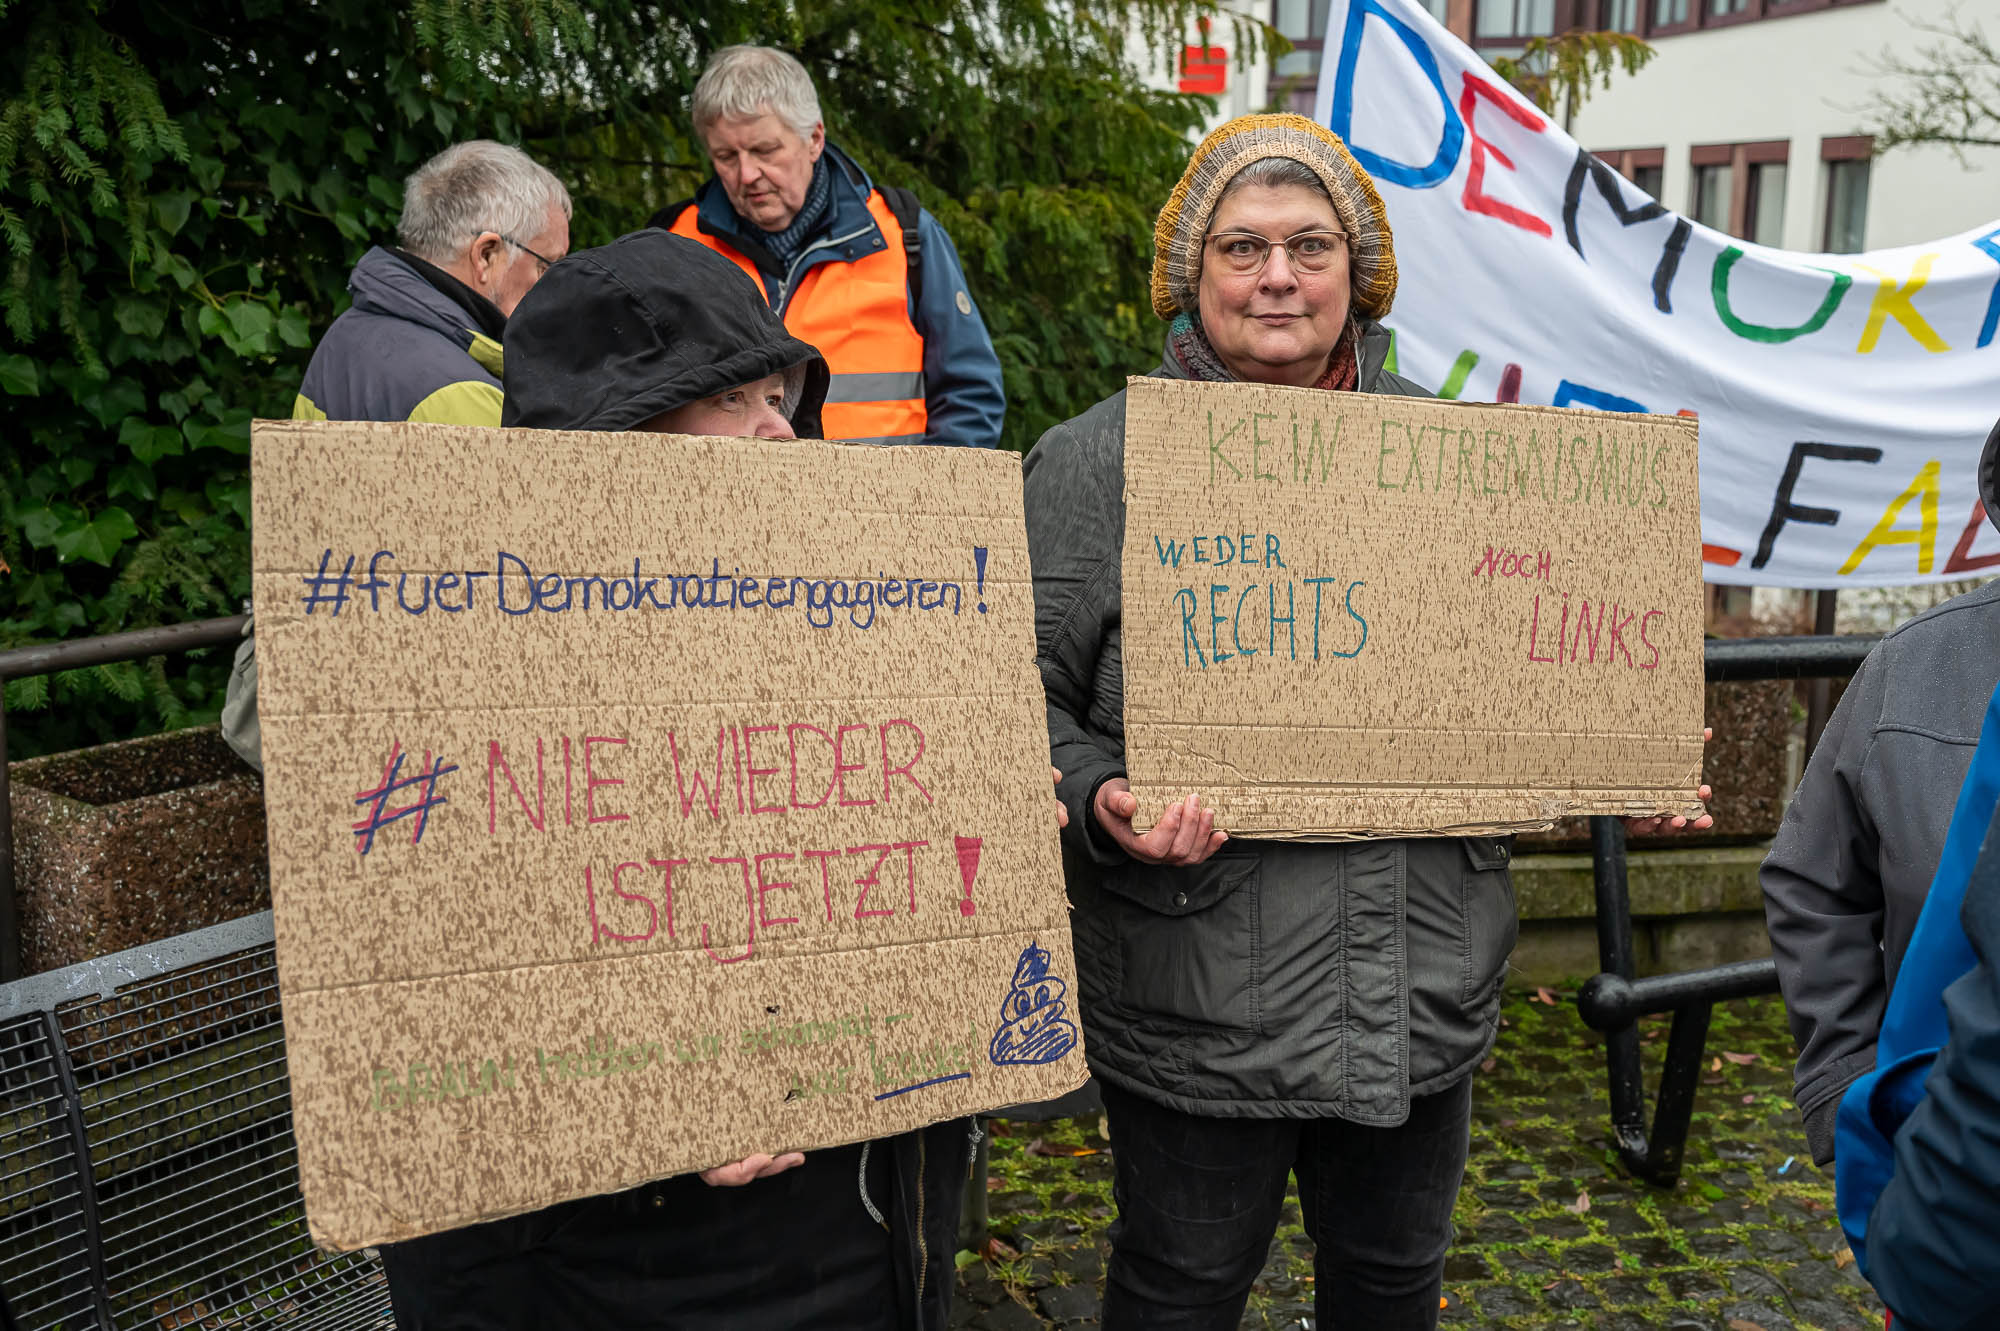 DEMOK
VIELFAL
#fuerDemokratieengagieren!
# NIE WIEDER
IST JETZT!
BRAUN hatten wir schonmal –
war kacke!
KEIN EXTREMISMUS
WEDER NOCH
RECHTS LINKS